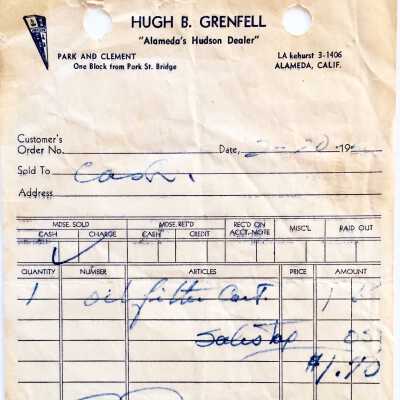 HUGH B. GRENFELL
"Alameda's Hudson Dealer"
PARK AND CLEMENT
One Block from Park St. Bridge
LA kehurst 3-1406
ALAMEDA, CALIF.
Customer's
Order No. Date, 2-20-19
Sold To Cash.
Address
MDSE. SOLD MDSE. RET'D REC'D ON ACCT.-NOTE MISC'L PAID OUT
CASH CHARGE CASH CREDIT
✓
QUANTITY NUMBER ARTICLES PRICE AMOUNT
1 oil filter Cart.
Sales tax 05
$1.40